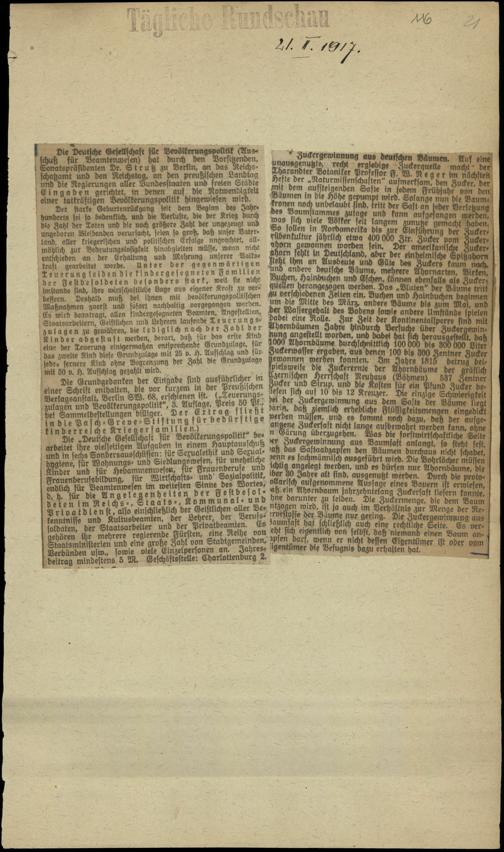 Tägliche Rundschau
116
21
21. II. 1917.
Die Deutsche Gesellschaft für Bevölkerungspolitik (Aus-
schuß für Beamtenwesen) hat durch den Vorsitzenden,
Senatspräsidenten Dr. Strutz zu Berlin, an das Reichs-
schatzamt und den Reichstag, an den preußischen Landtag
und die Regierungen aller Bundesstaaten und freien Städte
Eingaben gerichtet, in denen auf die Notwendigkeit
einer tatkräftigen Bevölkerungspolitik hingewiesen wird.
Der starke Geburtenrückgang seit dem Beginn des Jahr-
hunderts sei so bedenklich, und die Verluste, die der Krieg durch
die Zahl der Toten und die noch größere Zahl der ungezeugt und
ungeboren Bleibenden verursacht, seien so groß, daß unser Vater-
land, aller kriegerischen und politischen Erfolge ungeachtet, all-
mählich zur Bedeutungslosigkeit hinabgleiten müsse, wenn nicht
entschieden an der Erhaltung und Mehrung unserer Volks-
kraft gearbeitet werde. Unter der gegenwärtigen
Teuerung leiden die kindergesegneten Familien
der Festbesoldeten besonders stark, weil sie nicht
imstande sind, ihre wirtschaftliche Lage aus eigener Kraft zu ver-
bessern. Deshalb muß bei ihnen mit bevölkerungspolitischen
Maßnahmen zuerst und sofort nachhaltig vorgegangen werden.
Es wird beantragt, allen kindergesegneten Beamten, Angestellten,
Staatsarbeitern, Geistlichen und Lehrern laufende Teuerungs-
zulagen zu gewähren, die lediglich nach der Zahl der
Kinder abgestuft werden, derart, daß für das erste Kind
eine der Teuerung einigermaßen entsprechende Grundzulage, für
das zweite Kind diese Grundzulage mit 25 v. H. Aufschlag und für
jedes fernere Kind ohne Begrenzung der Zahl die Grundzulage
mit 50 v. H. Aufschlag gezahlt wird.
Die Grundgedanken der Eingabe sind ausführlicher in
einer Schrift enthalten, die vor kurzem in der Preußischen
Verlagsanstalt, Berlin SW. 68, erschienen ist. („Teuerungs-
zulagen und Bevölkerungspolitik", 3. Auflage, Preis 50 Pf.,
bei Sammelbestellungen billiger. Der Ertrag fließt
in die Stiftung für bedürftige
kinderreiche Kriegerfamilien.)
Die „Deutsche Gesellschaft für Bevölkerungspolitik" be-
arbeitet ihre vielseitigen Aufgaben in einem Hauptausschuß
und in sechs Sonderausschüssen: für Sexualethik und Sexual-
hygiene, für Wohnungs- und Siedlungswesen, für uneheliche
Kinder und für Hebammenwesen, für Frauenberufe und
Frauenberufsbildung, für Wirtschafts- und Sozialpolitik,
endlich für Beamtenwesen im weitesten Sinne des Wortes,
d. h. für die Angelegenheiten der Festbesol-
deten im Reichs-, Staats-, Kommunal- und
Privatdienst, also einschließlich der Geistlichen aller Be-
kenntnisse und Kultusbeamten, der Lehrer, der Berufs-
soldaten, der Staatsarbeiter und der Privatbeamten. Es
gehören ihr mehrere regierende Fürsten, eine Reihe von
Staatsministerien und eine große Zahl von Stadtgemeinden,
Verbänden usw., sowie viele Einzelpersonen an. Jahres-
beitrag mindestens 5 M. Geschäftsstelle: Charlottenburg 2.
Zuckergewinnung aus deutschen Bäumen. Auf eine
unausgenutzte, recht ergiebige Zuckerquelle macht der
Tharandter Botaniker Professor F. W. Neger im nächsten
Hefte der „Naturwissenschaften" aufmerksam, den Zucker, der
mit dem aufsteigenden Safte in jedem Frühjahr von den
Bäumen in die Höhe gepumpt wird. Solange nun die Baum-
kronen noch unbelaubt sind, tritt der Saft an jeder Verletzung
des Baumstammes zutage und kann aufgefangen werden,
was sich viele Völker seit langem zunutze gemacht haben.
So sollen in Nordamerika bis zur Einführung der Zucker-
rübenkultur jährlich etwa 400 000 Ztr. Zucker vom Zucker-
ahorn gewonnen worden sein. Der amerikanische Zucker-
ahorn fehlt in Deutschland, aber der einheimische Spitzahorn
steht ihm an Ausbeute und Güte des Zuckers kaum nach,
und andere deutsche Bäume, mehrere Ahornarten, Birken,
Buchen, Hainbuchen und Eschen, können ebenfalls als Zucker-
quellen herangezogen werden. Das „Bluten" der Bäume tritt
zu verschiedenen Zeiten ein. Buchen und Hainbuchen beginnen
um die Mitte des März, andere Bäume bis zum Mai, und
der Wassergehalt des Bodens sowie andere Umstände spielen
dabei eine Rolle. Zur Zeit der Kontinentalsperre sind mit
Ahornbäumen Jahre hindurch Versuche über Zuckergewin-
nung angestellt worden, und dabei hat sich herausgestellt, daß
1000 Ahornbäume durchschnittlich 100 000 bis 300 000 Liter
Zuckerwasser ergaben, aus denen 100 bis 300 Zentner Zucker
gewonnen werden konnten. Im Jahre 1815 betrug bei-
spielsweise die Zuckerernte der Ahornbäume der gräflich
Czerninschen Herrschaft Neuhaus (Böhmen) 537 Zentner
Zucker und Sirup, und die Kosten für ein Pfund Zucker be-
liefen sich auf 10 bis 12 Kreuzer. Die einzige Schwierigkeit
bei der Zuckergewinnung aus dem Safte der Bäume liegt
darin, daß ziemlich erhebliche Flüssigkeitsmengen eingedickt
werden müssen, und es kommt noch dazu, daß der aufge-
fangene Zuckersaft nicht lange aufbewahrt werden kann, ohne
in Gärung überzugehen. Was die forstwirtschaftliche Seite
der Zuckergewinnung aus Baumsaft anlangt, so steht fest,
daß das Saftabzapfen den Bäumen durchaus nicht schadet,
wenn es sachmännisch ausgeführt wird. Die Bohrlöcher müssen
richtig angelegt werden, und es dürfen nur Ahornbäume, die
über 30 Jahre alt sind, ausgenutzt werden. Durch die proto-
kollarisch aufgenommene Aussage eines Bauern ist erwiesen,
daß ein Ahornbaum jahrzehntelang Zuckersaft liefern konnte,
ohne darunter zu leiden. Die Zuckermenge, die dem Baum
entzogen wird, ist auch im Verhältnis zur Menge der Re-
servestoffe der Bäume nur gering. Die Zuckergewinnung aus
Baumsaft hat schließlich auch eine rechtliche Seite. Es ver-
steht sich eigentlich von selbst, daß niemand einen Baum an-
zapfen darf, wenn er nicht dessen Eigentümer ist oder vom
Eigentümer die Befugnis dazu erhalten hat.